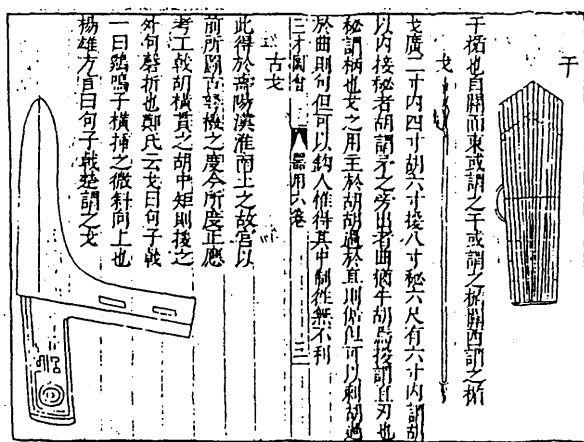 干
干楯也自關而東或謂之干或謂之楯關西謂之楯
戈
戈廣二寸內四寸胡六寸接八寸秘六尺有六寸內謂胡
以內接秘者胡謂矛之旁出者曲猶牛胡焉接謂直刃也
秘謂柄也戈之用主於胡胡過於直則倨但可以刺胡過
於曲則句但可以鈎人惟得其中制作無不利
三才圖會
器用六卷
三
古戈
此得於壽陽漢淮南王之故宮以
前所圖古弩機之度今所度正應
考工戟胡橫貫之胡中矩則後之
外句磬折也鄭氏云戈曰句子戟
一曰雞鳴子橫揷之微斜向上也
楊雄方言曰句子戟楚謂之戈